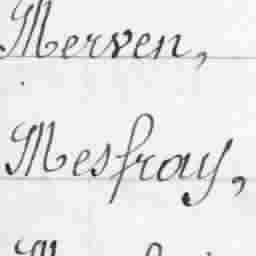 Merven,
Mesfray,